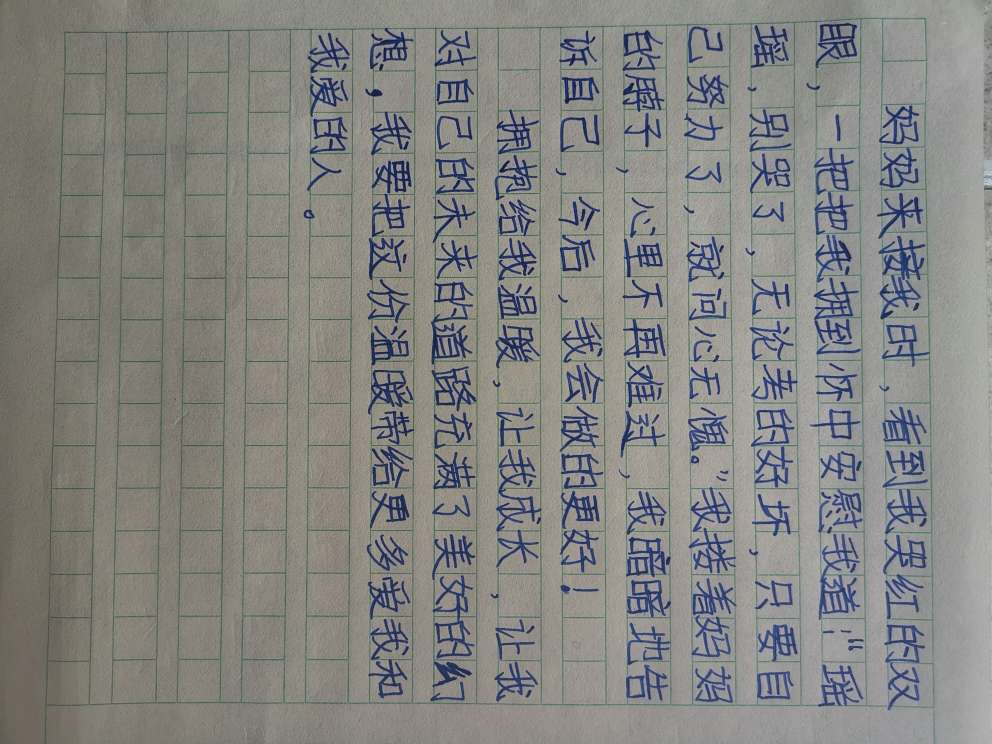 妈妈来接我时，看到我哭红的双
眼，一把把我拥到怀中安慰我道：“瑶
瑶，别哭了，无论考的好坏，只要自
己努力了，就问心无愧。”我搂着妈妈
的脖子，心里不再难过，我暗暗地告
诉自己，今后，我会做的更好！
拥抱给我温暖，让我成长，让我
对自己的未来的道路充满了美好的幻
想，我要把这份温暖带给男多爱我和
我爱的人。